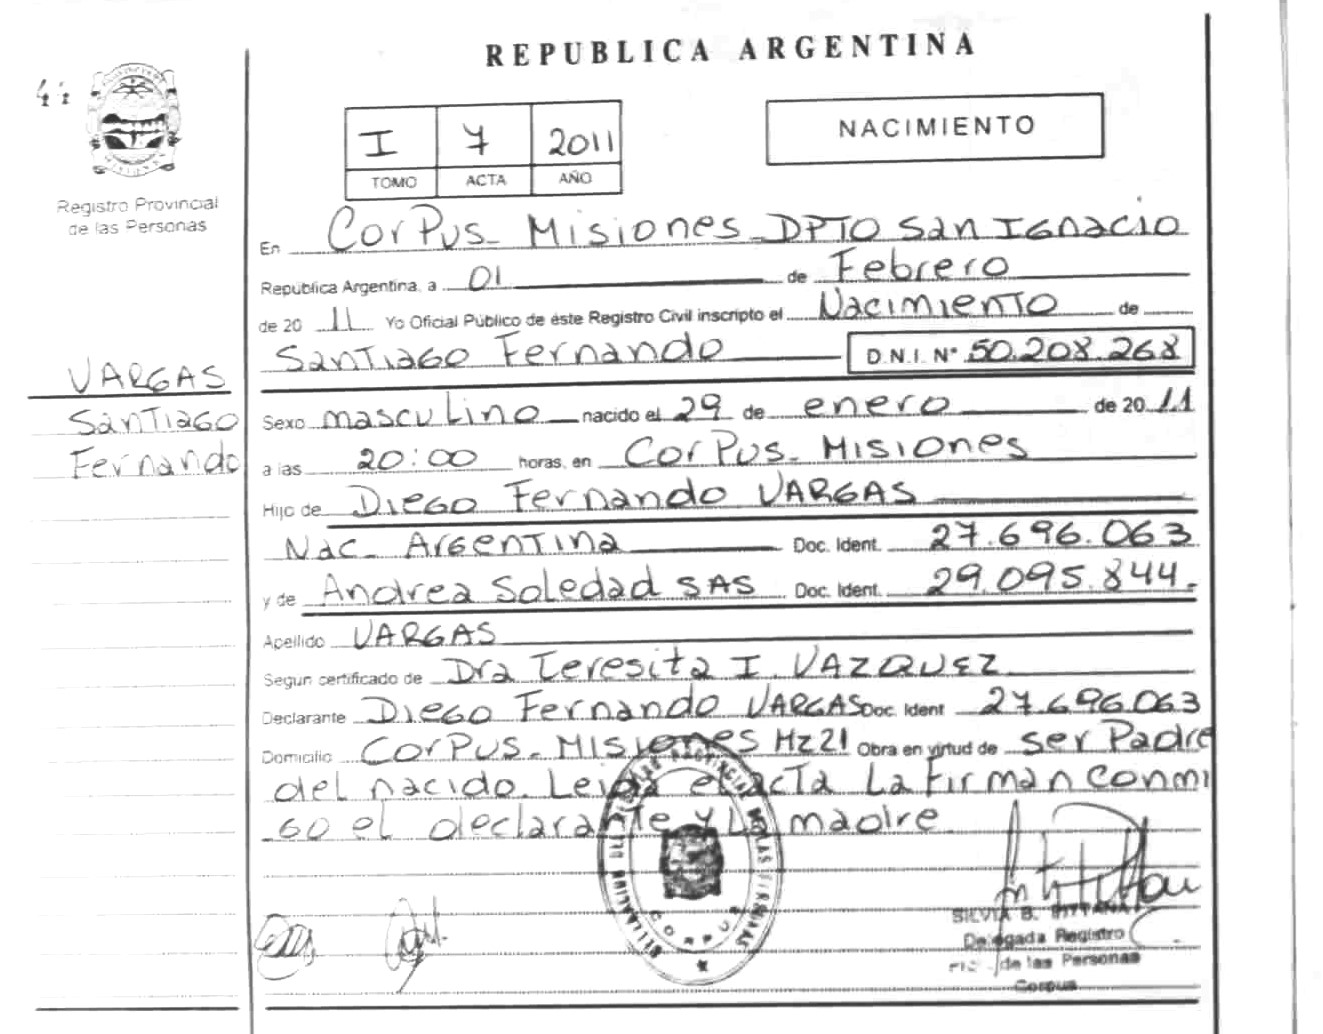 REPUBLICA ARGENTINA
I 7 2011
TOMO ACTA AÑO
NACIMIENTO
Registro Provincial
de las Personas
En CorPus- Misiones- DPTO San IGnacio
República Argentina, a 01 de Febrero
de 20 11 Yo Oficial Público de éste Registro Civil inscripto el Nacimiento de
SanTiaGo Fernando D.N.I. N° 50.208.268
VARGAS
SanTiaGo
Fernando
Sexo masculino nacido el 29 de enero de 20 11
a las 20:00 horas, en CorPus- Misiones
Hijo de DieGo Fernando VARGAS
Nac- ArGenTina Doc. Ident. 27.696.063
y de Andrea Soledad SAS Doc. Ident. 29.095.844.
Apellido VARGAS
Segun certificado de Dra Teresita I. VAZQUEZ
Declarante DieGo Fernando VARGAS Doc. Ident 27.696.063
Domicilio CorPus- Misiones Hz21 Obra en virtud de ser Padre
del nacido. Leida el acTa La Firman conmi
-Go el declaranTe y La madre
CORPUS
SILVIA B.
Delegada Registro
de las Personas
Corpus